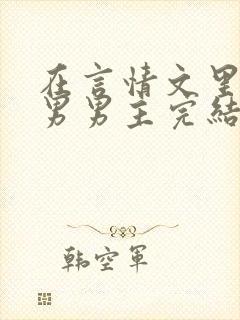 在言情文里
男男主完结
韩空军